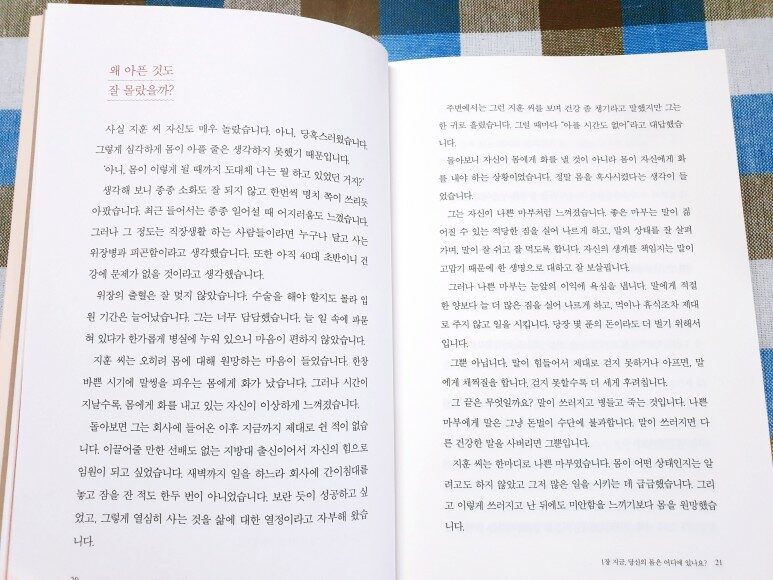 왜 아픈 것도
잘 몰랐을까?
사실 지훈 씨 자신도 매우 놀랐습니다. 아니, 당혹스러웠습니다.
그렇게 심각하게 몸이 아플 줄은 생각하지 못했기 때문입니다.
'아니, 몸이 이렇게 될 때까지 도대체 나는 뭘 하고 있었던 거지?'
생각해 보니 종종 소화도 잘 되지 않고 한번씩 명치 쪽이 쓰리듯
아팠습니다. 최근 들어서는 종종 일어설 때 어지러움도 느꼈습니다.
그러나 그 정도는 직장생활 하는 사람들이라면 누구나 달고 사는
위장병과 피곤함이라고 생각했습니다. 또한 아직 40대 초반이니 건
강에 문제가 없을 것이라고 생각했습니다.
위장의 출혈은 잘 멎지 않았습니다. 수술을 해야 할지도 몰라 입
원 기간은 늘어났습니다. 그는 너무 답답했습니다. 늘 일 속에 파묻
혀 있다가 한가롭게 병실에 누워 있으니 마음이 편하지 않았습니다.
지훈 씨는 오히려 몸에 대해 원망하는 마음이 들었습니다. 한창
바쁜 시기에 말썽을 피우는 몸에게 화가 났습니다. 그러나 시간이
지날수록, 몸에게 화를 내고 있는 자신이 이상하게 느껴졌습니다.
돌아보면 그는 회사에 들어온 이후 지금까지 제대로 쉰 적이 없습
니다. 이끌어줄 만한 선배도 없는 지방대 출신이어서 자신의 힘으로
임원이 되고 싶었습니다. 새벽까지 일을 하느라 회사에 간이침대를
놓고 잠을 잔 적도 한두 번이 아니었습니다. 보란 듯이 성공하고 싶
었고, 그렇게 열심히 사는 것을 삶에 대한 열정이라고 자부해 왔습
니다.
20
주변에서는 그런 지훈 씨를 보며 건강 좀 챙기라고 말했지만 그는
한 귀로 흘렸습니다. 그럴 때마다 "아플 시간도 없어"라고 대답했습
니다.
돌아보니 자신이 몸에게 화를 낼 것이 아니라 몸이 자신에게 화
를 내야 하는 상황이었습니다. 정말 몸을 혹사시켰다는 생각이 들
었습니다.
그는 자신이 나쁜 마부처럼 느껴졌습니다. 좋은 마부는 말이 짊
어질 수 있는 적당한 짐을 실어 나르게 하고, 말의 상태를 잘 살펴
가며, 말이 잘 쉬고 잘 먹도록 합니다. 자신의 생계를 책임지는 말이
고맙기 때문에 한 생명으로 대하고 잘 보살핍니다.
그러나 나쁜 마부는 눈앞의 이익에 욕심을 냅니다. 말에게 적절
한 양보다 늘 더 많은 짐을 실어 나르게 하고, 먹이나 휴식조차 제대
로 주지 않고 일을 시킵니다. 당장 몇 푼의 돈이라도 더 벌기 위해서
입니다.
그뿐 아닙니다. 말이 힘들어서 제대로 걷지 못하거나 아프면, 말
에게 채찍질을 합니다. 걷지 못할수록 더 세게 후려칩니다.
그 끝은 무엇일까요? 말이 쓰러지고 병들고 죽는 것입니다. 나쁜
마부에게 말은 그냥 돈벌이 수단에 불과합니다. 말이 쓰러지면 다
른 건강한 말을 사버리면 그뿐입니다.
지훈 씨는 한마디로 나쁜 마부였습니다. 몸이 어떤 상태인지는 알
려고도 하지 않았고 그저 많은 일을 시키는 데 급급했습니다. 그리
고 이렇게 쓰러지고 난 뒤에도 미안함을 느끼기보다 몸을 원망했습
니다.
1장 지금, 당신의 몸은 어디에 있나요? 21